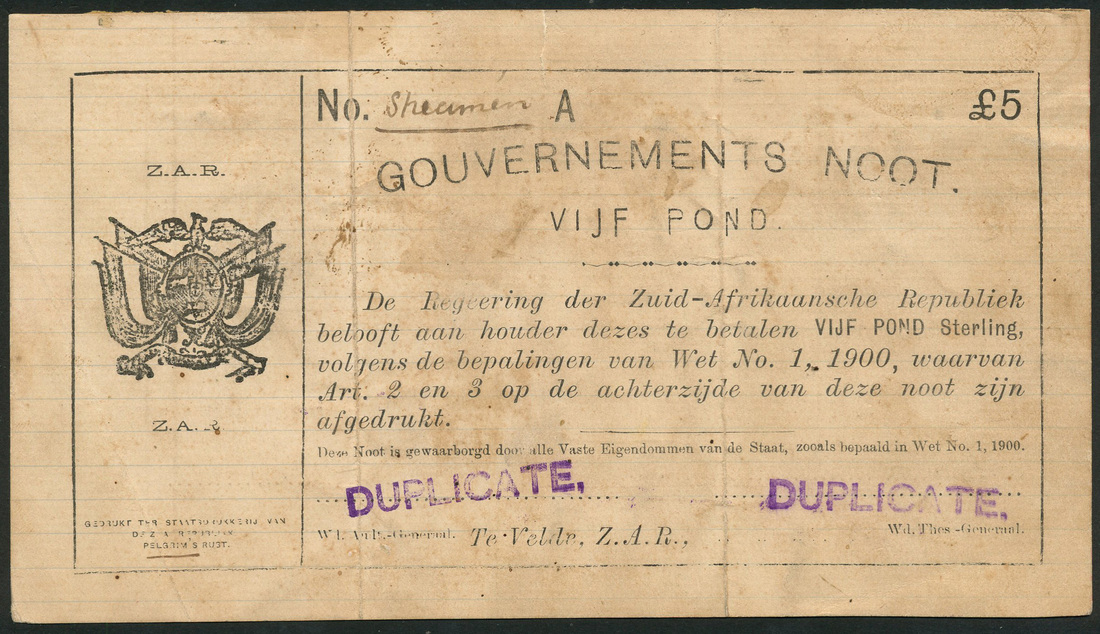 Z.A.R.
Z.A.R
GEDRUKT TER STAATSDRUKKERIJ VAN
DE Z.A. REPUBLIEK
PELGRIM'S RUST.
No. Specimen A £5
GOUVERNEMENTS NOOT.
VIJF POND.
De Regeering der Zuid-Afrikaansche Republiek
belooft aan houder dezes te betalen VIJF POND Sterling,
volgens de bepalingen van Wet No. 1, 1900, waarvan
Art. 2 en 3 op de achterzijde van deze noot zijn
afgedrukt.
Deze Noot is gewaarborgd door alle Vaste Eigendommen van de Staat, zooals bepaald in Wet No. 1, 1900.
DUPLICATE, DUPLICATE,
Wd. Aud.-Generaal. Te Velde, Z.A.R., Wd. Thes.-Generaal.